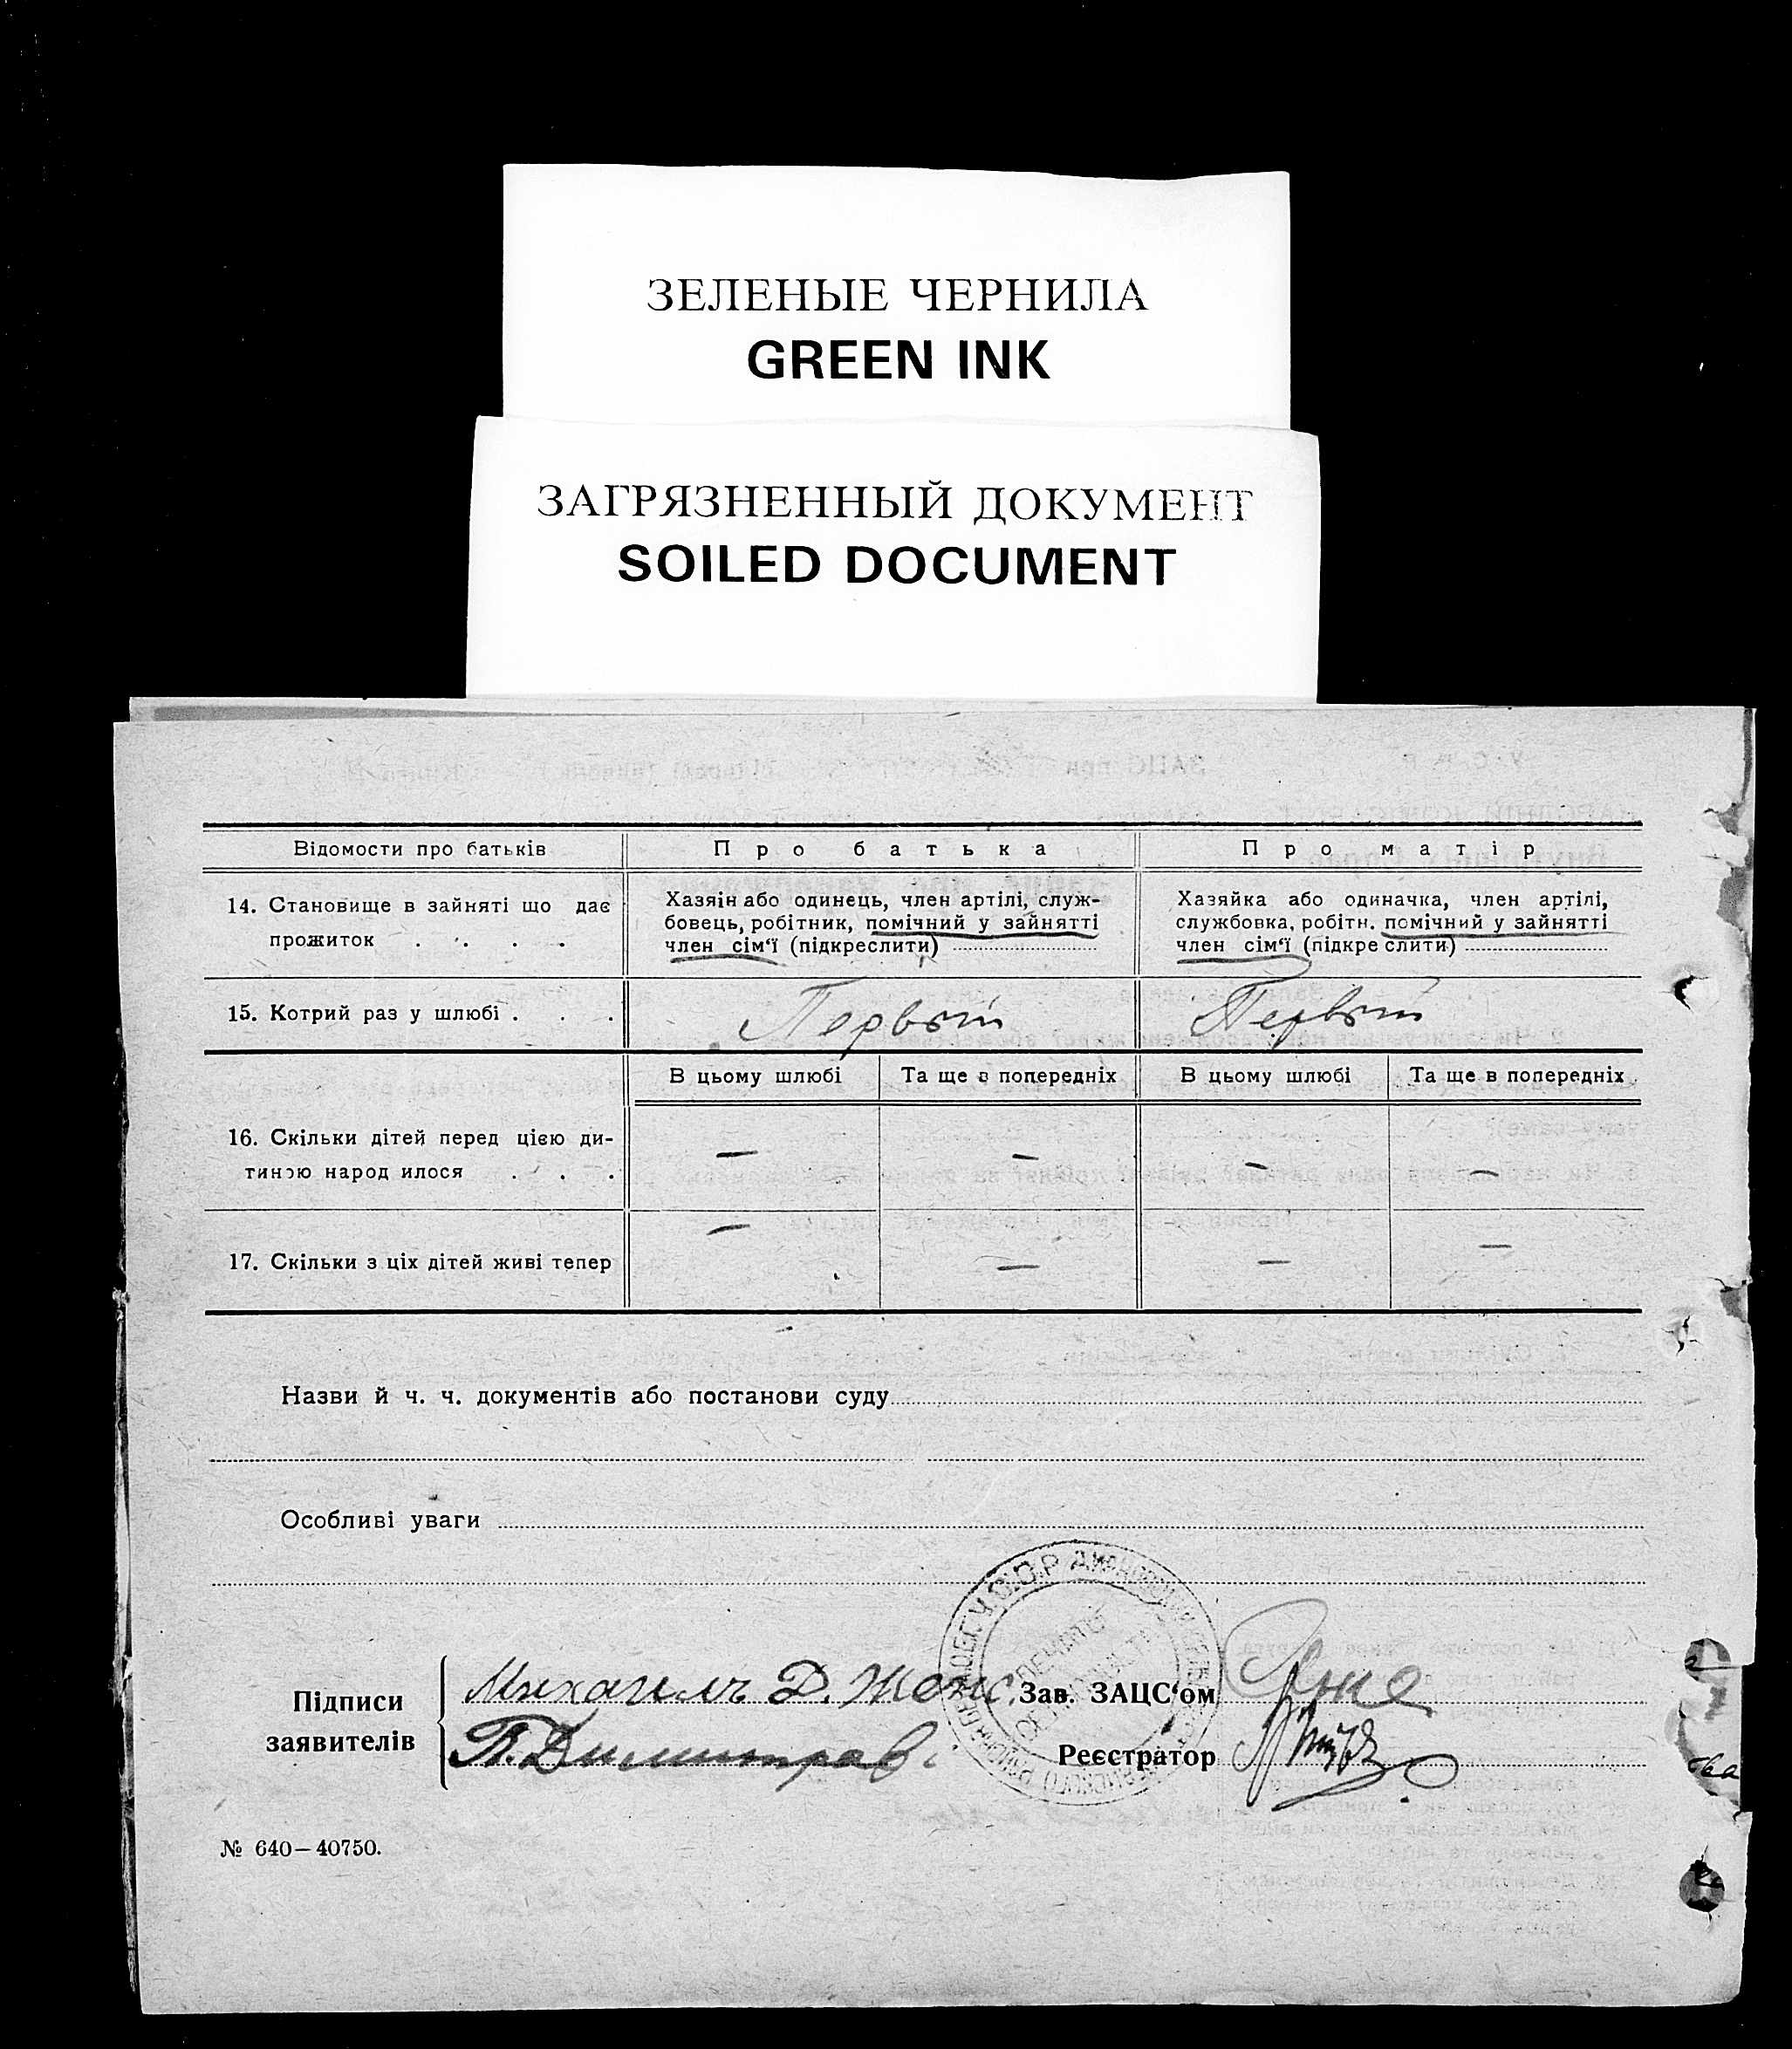 ЗЕЛЕНЫЕ ЧЕРНИЛА
GREEN INK
ЗАГРЯЗНЕННЫЙ ДОКУМЕНТ
SOILED DOCUMENT
Відомости про батьків
Про батька
Про матір
14. Становище в зайняті що дає прожиток . . . .
Хазяін або одинець, член артілі, служ-
бовець, робітник, помічний у зайнятті
член сім‘ї (підкреслити)
Хазяйка або одиначка, член артілі,
службовка, робітн. помічний у зайнятті
член сім‘ї (підкреслити)
15. Котрий раз у шлюбі . . .
Первый
Первый
В цьому шлюбі
Та ще в попередніх
В цьому шлюбі
Та ще в попередніх
16. Скільки дітей перед цією ди-
тиною народилося . . .
— — — —
17. Скільки з ціх дітей живі тепер
— — — —
Назви й ч. ч. документів або постанови суду
Особливі уваги
Підписи
заявителів
Михаилъ Д. Жекс
П. Димитров.
Зав. ЗАЦС‘ом
Реєстратор
У.С.С.Р
№ 640—40750.